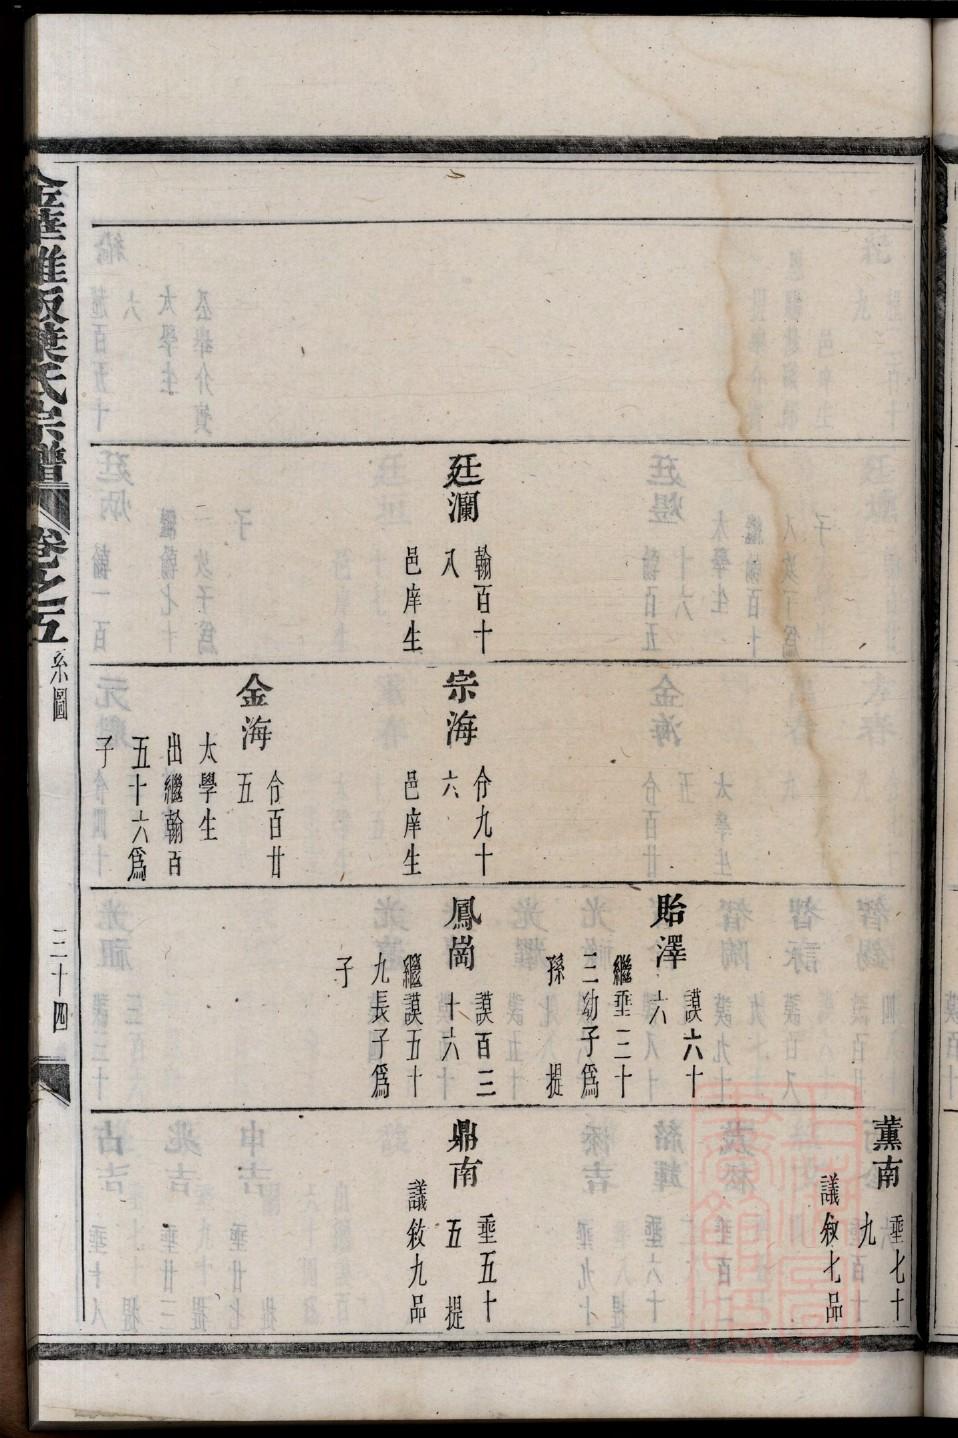 廷瀾
翰百十
八
邑庠生
宗海
分九十
六
邑庠生
金海
分百廿
五
太學生
出繼翰百
五十六爲
子
貽澤
謨六十
六
繼垂三十
三幼子爲
孫 提
鳳崗
謨百三
十六
繼謨五十
九長子爲
子
薰南
垂七十
九
議敘七品
鼎南
垂五十
五 提
議敘九品
葉氏宗譜
卷之五
系圖
三十四